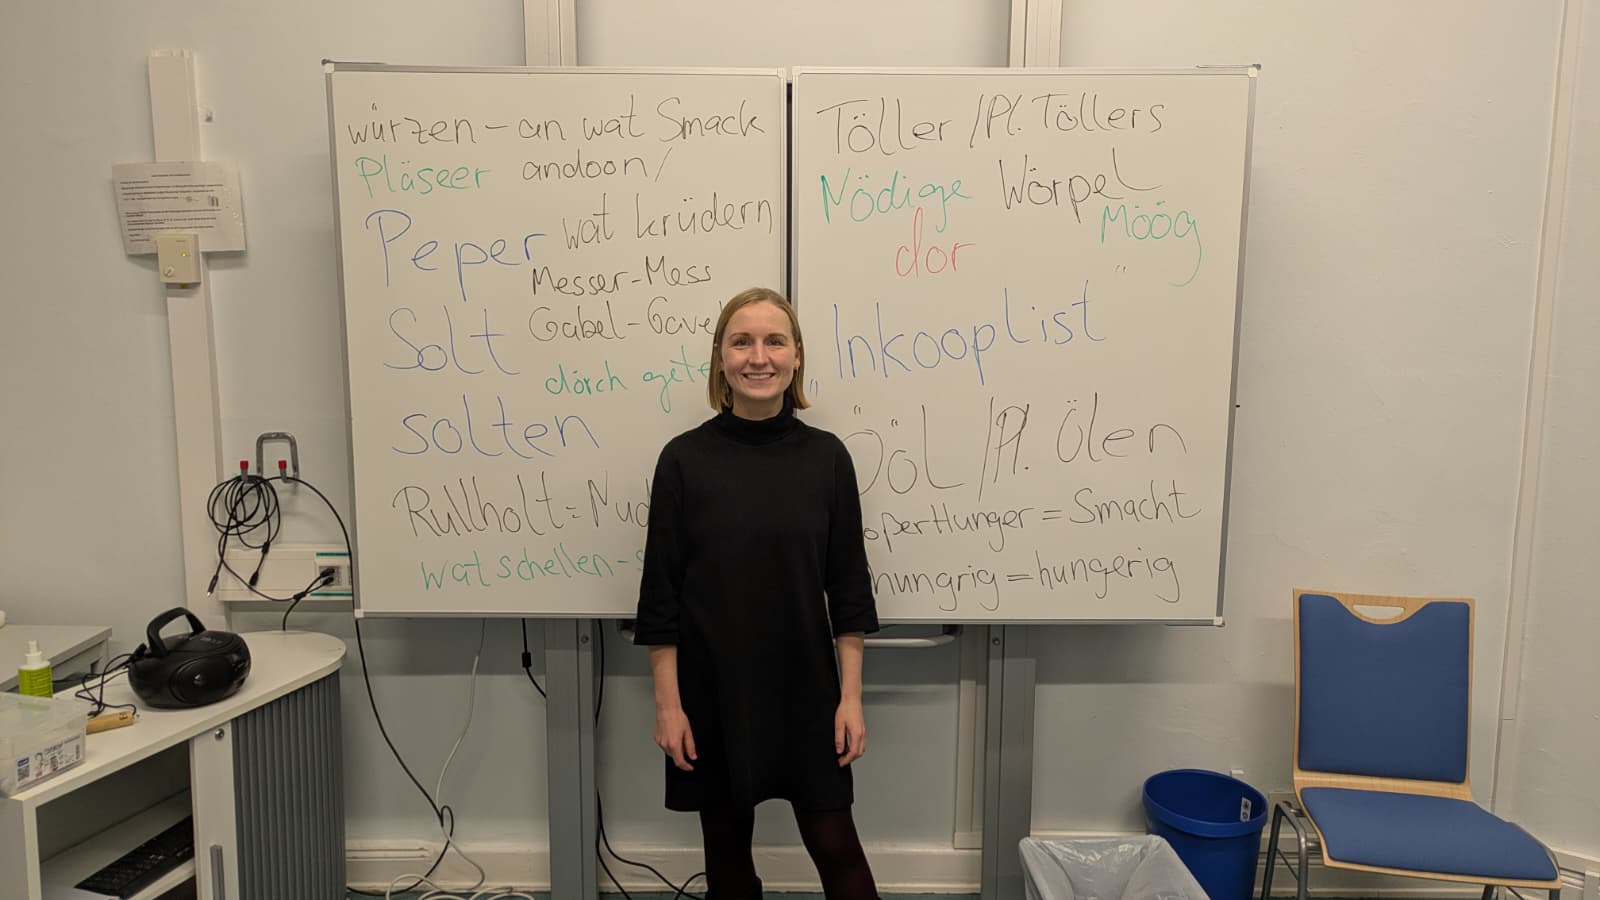 würzen - an wat Smack
Pläseer andoon/
Peper wat krüdern
Messer-Mess
Solt Gabel-Gave
dörch gete
solten
Rullholt = Nud
wat schellen-s
Töller /Pl. Töllers
Nödige Wörpel
dor Möög
Inkooplist
Ööl /Pl. Ölen
oßer Hunger = Smacht
hungrig = hungerig